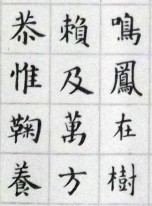 鳴鳳在樹
賴及萬方
恭惟鞠養